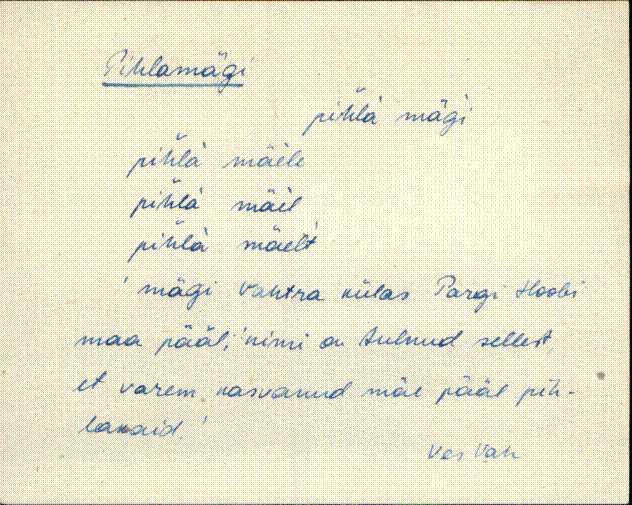 Pihlamägi
pih̆là mägì
pih̆là mäèle
pih̆là mäèl
pih̆là mäèl't
' mägi Vahtra külas Pargi Hoobi
maa pääl; nimi on tulnud sellest,
et varem kasvanud mäe pääl pih-
lakaid.'
Vas Vah